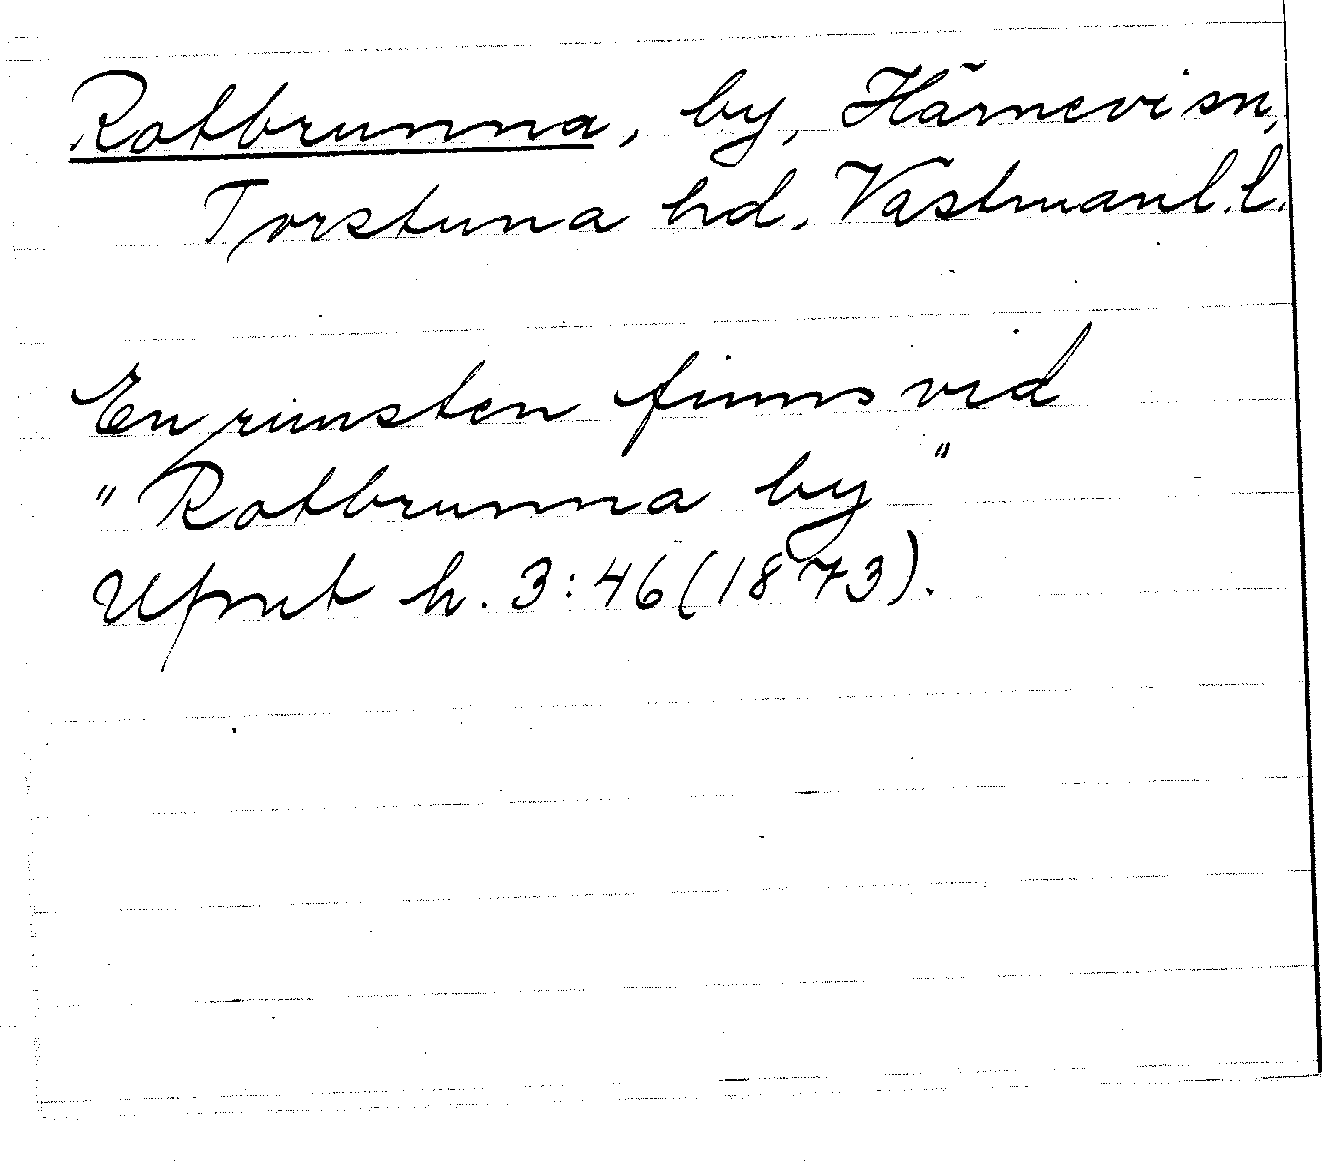 Rotbrunna, by, Härnevi sn,
Torstuna hd. Västmanl. l.
En runsten finns vid
"Rotbrunna by"
Ufmt h. 3:46 (1873).